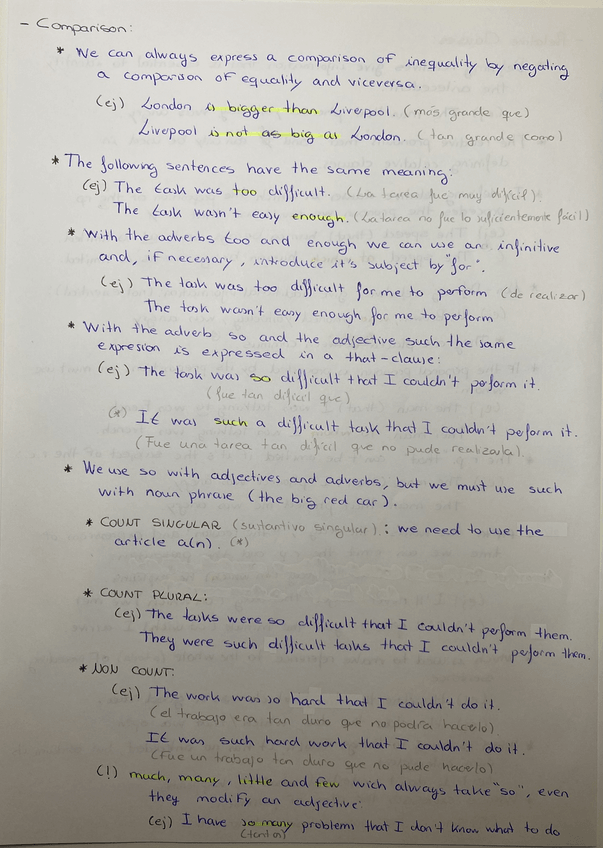 - Comparison:
* We can always express a comparison of inequality by negating
a comparison of equality and viceversa.
(ej) London is bigger than Liverpool. (más grande que)
Liverpool is not as big as London. (tan grande como)
* The following sentences have the same meaning:
(ej) The task was too difficult. (La tarea fue muy difícil)
The task wasn't easy enough. (La tarea no fue lo suficientemente fácil)
* With the adverbs too and enough we can use an infinitive
and, if necessary, introduce it's subject by "for".
(ej) The task was too difficult for me to perform (de realizar)
The task wasn't easy enough for me to perform
* With the adverb so and the adjective such the same
expresion is expressed in a that-clause:
(ej) The task was so difficult that I couldn't perform it.
(fue tan difícil que)
(*) It was such a difficult task that I couldn't peform it.
(Fue una tarea tan difícil que no pude realizarla).
* We use so with adjectives and adverbs, but we must use such
with noun phrase (the big red car).
* COUNT SINGULAR (sustantivo singular): we need to use the
article a(n). (*)
* COUNT PLURAL:
(ej) The tasks were so difficult that I couldn't perform them.
They were such difficult tasks that I couldn't peform them.
* NON COUNT:
(ej) The work was so hard that I couldn't do it.
(el trabajo era tan duro que no podía hacerlo).
It was such hard work that I couldn't do it.
(Fue un trabajo tan duro que no pude hacerlo)
(!) much, many, little and few wich always take "so", even
they modify an adjective:
(ej) I have so many problems that I don't know what to do
(tantos)